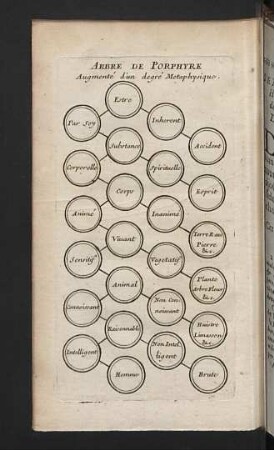 ARBRE DE PORPHYRE
Augmenté d'un degré Metaphysique.
Estre
Par soy
Inherent
Substance
Accident
Corporelle
Spirituelle
Corps
Esprit
Animé
Inanimé
Vivant
Terre Eau
Pierre
&c.
Sensitif
Vegetatif
Animal
Plante
Arbre Fleur
&c.
Connoissant
Non Con-
noissant
Raisonnable
Huistre
Limasson
&c.
Intelligent
Non Intel-
ligent
Homme
Brute